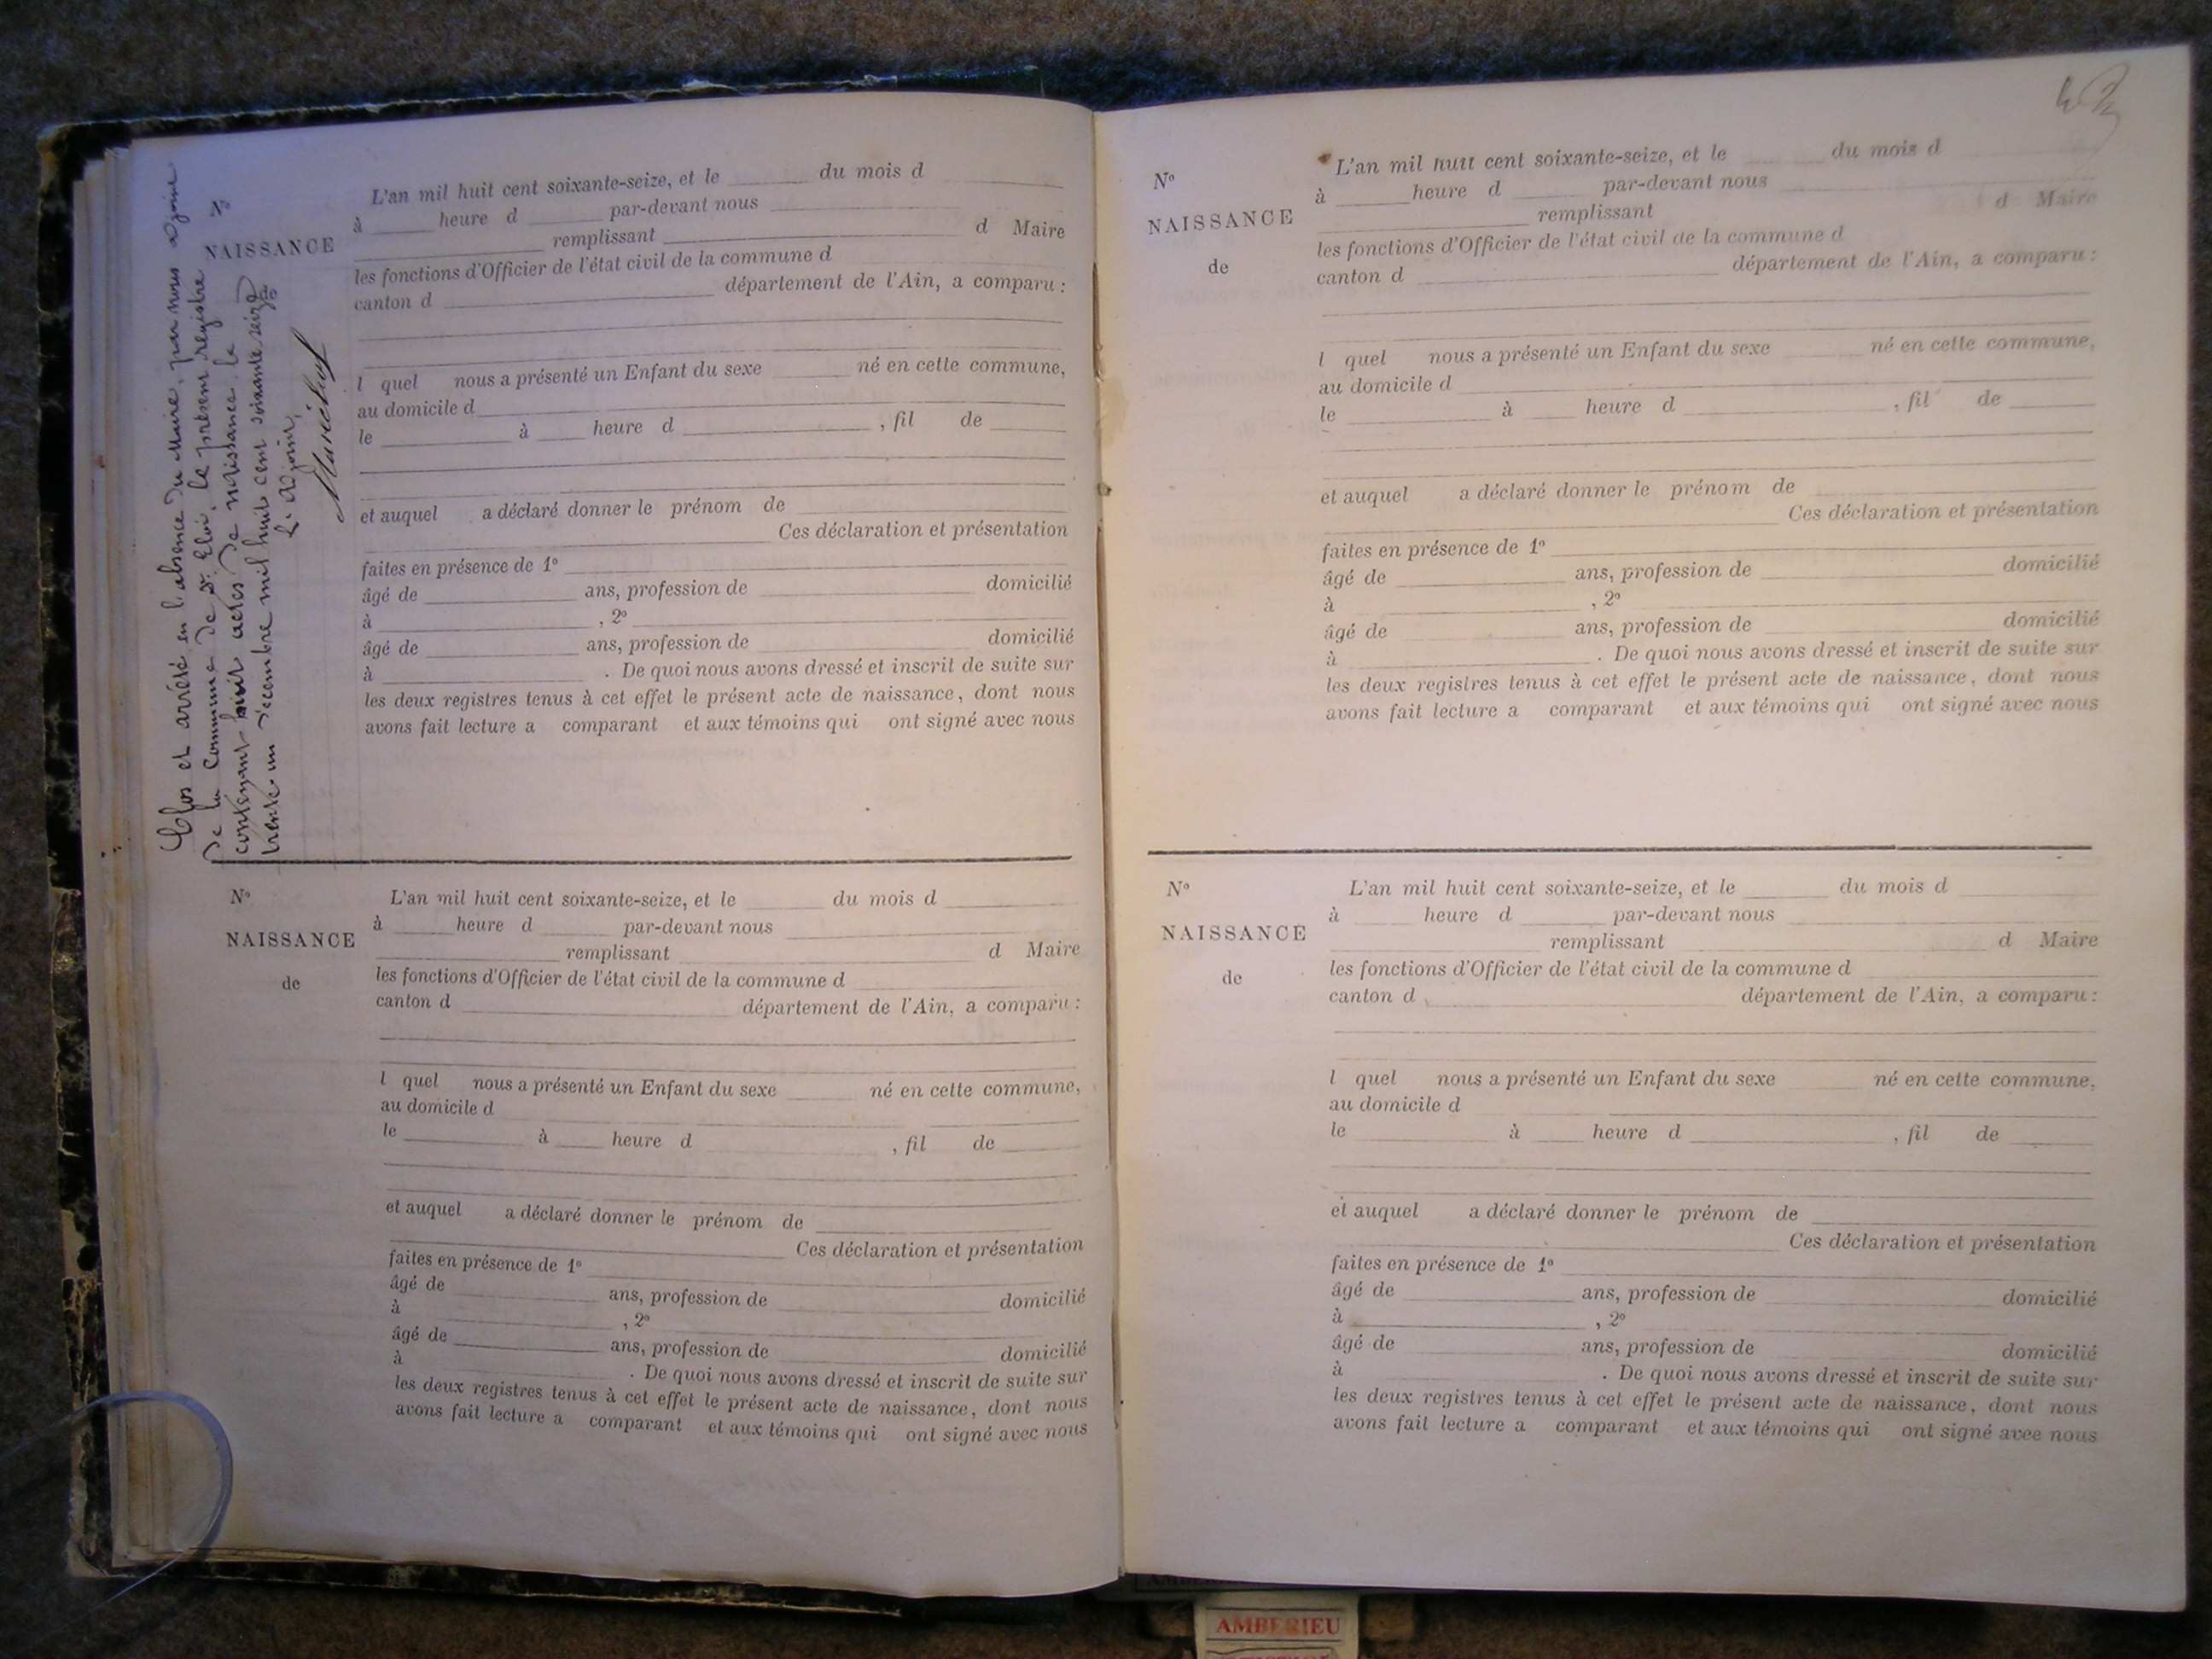 Clos et arrêté, en l'absence du Maire, par nous adjoint
de la Commune de St. Eloi, le présent registre
contenant huit actes de naissance le
trente un décembre mil huit cent soixante seize
L'adjoint,
N°
NAISSANCE
L'an mil huit cent soixante-seize, et le du mois d
à heure d par-devant nous
remplissant d Maire
les fonctions d'Officier de l'état civil de la commune d
canton d département de l'Ain, a comparu :
l quel nous a présenté un Enfant du sexe né en cette commune,
au domicile d
le à heure d , fil de
et auquel a déclaré donner le prénom de
Ces déclaration et présentation
faites en présence de 1º
âgé de ans, profession de domicilié
à , 2º
âgé de ans, profession de domicilié
à . De quoi nous avons dressé et inscrit de suite sur
les deux registres tenus à cet effet le présent acte de naissance, dont nous
avons fait lecture a comparant et aux témoins qui ont signé avec nous
Nº
NAISSANCE
de
L'an mil huit cent soixante-seize, et le du mois d
à heure d par-devant nous
remplissant d Maire
les fonctions d'Officier de l'état civil de la commune d
canton d département de l'Ain, a comparu :
l quel nous a présenté un Enfant du sexe né en cette commune,
au domicile d
le à heure d , fil de
et auquel a déclaré donner le prénom de
Ces déclaration et présentation
faites en présence de 1º
âgé de ans, profession de domicilié
à , 2º
âgé de ans, profession de domicilié
à . De quoi nous avons dressé et inscrit de suite sur
les deux registres tenus à cet effet le présent acte de naissance, dont nous
avons fait lecture a comparant et aux témoins qui ont signé avec nous
Nº
NAISSANCE
de
L'an mil huit cent soixante-seize, et le du mois d
à heure d par-devant nous
remplissant d Maire
les fonctions d'Officier de l'état civil de la commune d
canton d département de l'Ain, a comparu :
l quel nous a présenté un Enfant du sexe né en cette commune,
au domicile d
le à heure d , fil de
et auquel a déclaré donner le prénom de
Ces déclaration et présentation
faites en présence de 1º
âgé de ans, profession de domicilié
à , 2º
âgé de ans, profession de domicilié
à . De quoi nous avons dressé et inscrit de suite sur
les deux registres tenus à cet effet le présent acte de naissance, dont nous
avons fait lecture a comparant et aux témoins qui ont signé avec nous
Nº
NAISSANCE
de
L'an mil huit cent soixante-seize, et le du mois d
à heure d par-devant nous
remplissant d Maire
les fonctions d'Officier de l'état civil de la commune d
canton d département de l'Ain, a comparu :
l quel nous a présenté un Enfant du sexe né en cette commune,
au domicile d
le à heure d , fil de
et auquel a déclaré donner le prénom de
Ces déclaration et présentation
faites en présence de 1º
âgé de ans, profession de domicilié
à , 2º
âgé de ans, profession de domicilié
à . De quoi nous avons dressé et inscrit de suite sur
les deux registres tenus à cet effet le présent acte de naissance, dont nous
avons fait lecture a comparant et aux témoins qui ont signé avec nous
AMBERIEU